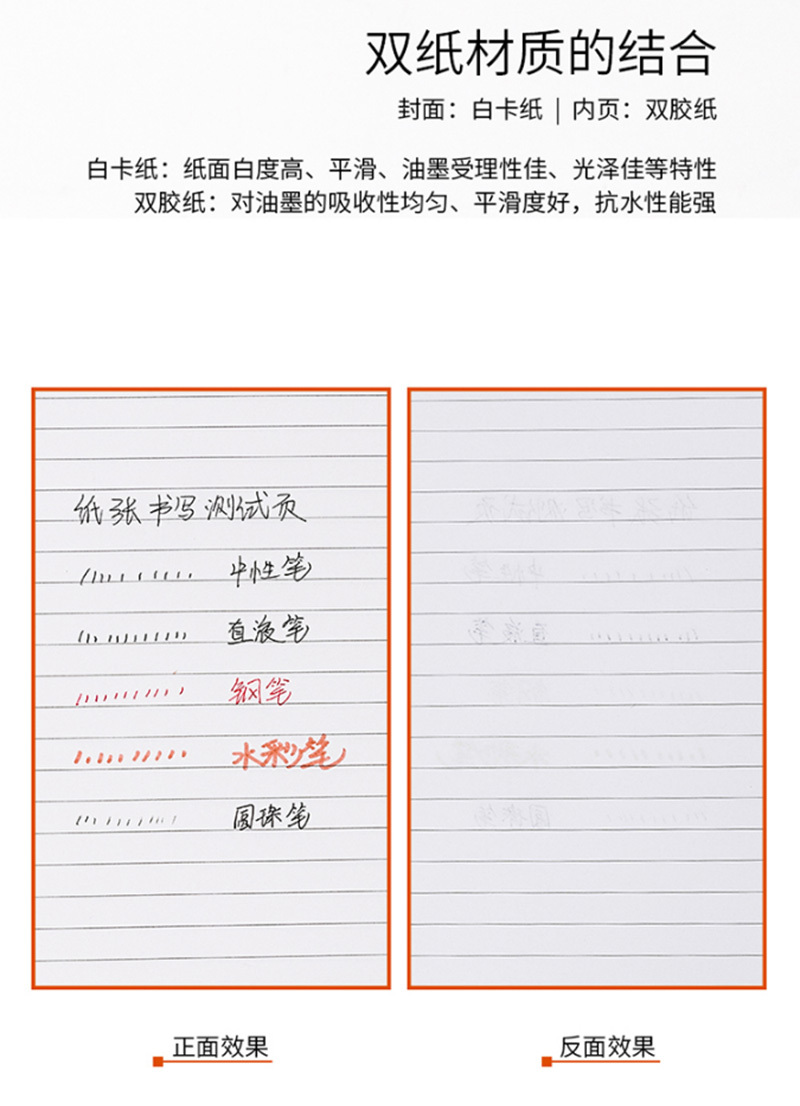 双纸材质的结合
封面：白卡纸 | 内页：双胶纸
白卡纸：纸面白度高、平滑、油墨受理性佳、光泽佳等特性
双胶纸：对油墨的吸收性均匀、平滑度好，抗水性能强
纸张书写测试页
中性笔
直液笔
钢笔
水彩笔
圆珠笔
正面效果
反面效果